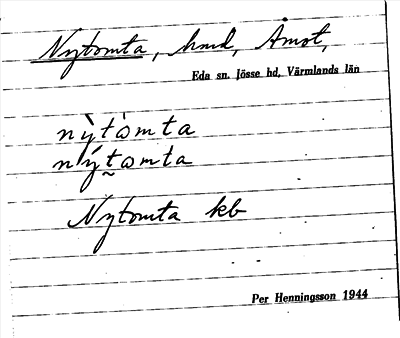 Nytomta, hmd, Åmot,
Eda sn. Jösse hd, Värmlands län
nỳtòmta
nýt̰omta
Nytomta kb
Per Henningsson 1944